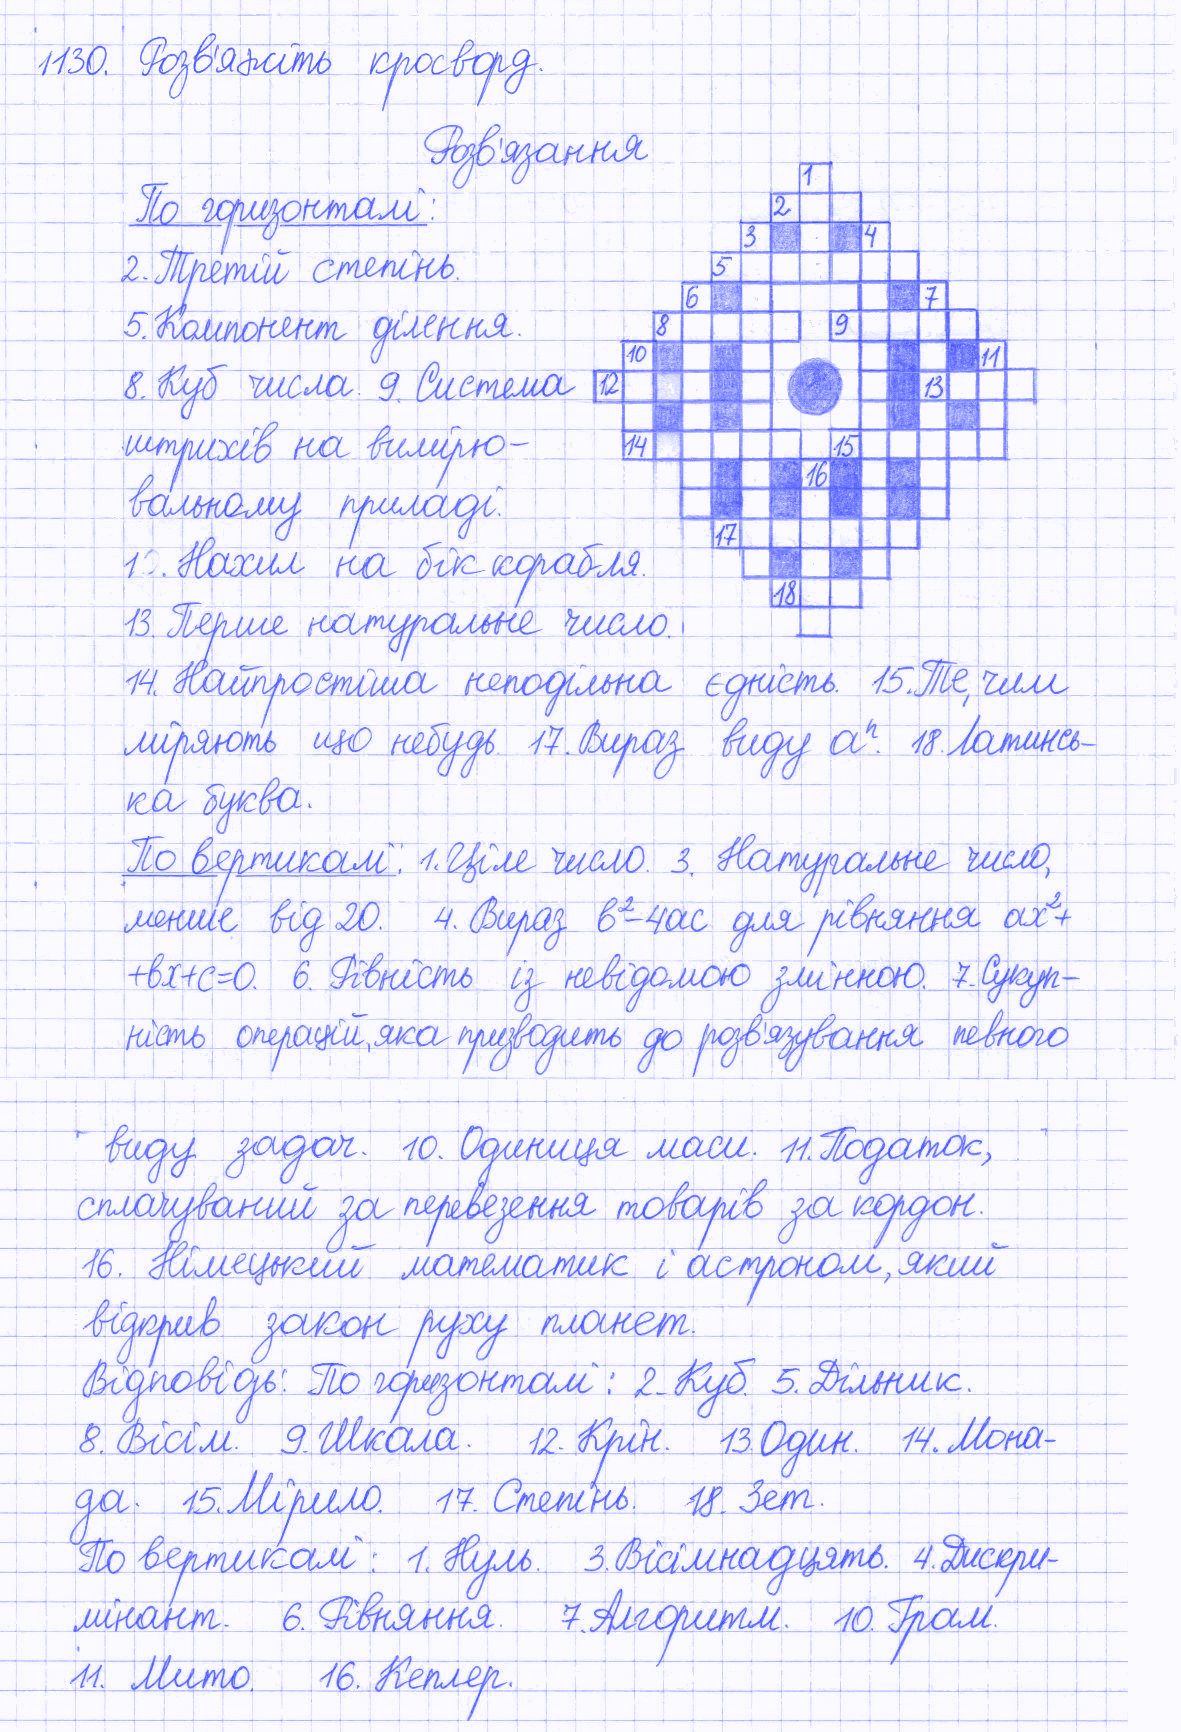 1130. Розв'яжіть кросворд.
Розв'язання
По горизонталі:
2. Третій степінь.
5. Компонент ділення.
8. Куб числа. 9. Система
штрихів на вимірю-
вальному приладі.
12. Нахил на бік корабля.
13. Перше натуральне число.
14. Найпростіша неподільна єдність. 15. Те, чим
міряють що небудь. 17. Вираз виду aⁿ. 18. Латинсь-
ка буква.
По вертикалі: 1. Ціле число. 3. Натуральне число,
менше від 20. 4. Вираз b²-4ac для рівняння ax²+
+bx+c=0. 6. Рівність із невідомою змінною. 7. Сукуп-
ність операцій, яка призводить до розв'язування певного
виду задач. 10. Одиниця маси. 11. Податок,
сплачуваний за перевезення товарів за кордон.
16. Німецький математик і астроном, який
відкрив закон руху планет.
Відповідь: По горизонталі: 2. Куб. 5. Дільник.
8. Вісім. 9. Шкала. 12. Крін. 13. Один. 14. Мона-
да. 15. Мірило. 17. Степінь. 18. Зет.
По вертикалі: 1. Нуль. 3. Вісімнадцять. 4. Дискри-
мінант. 6. Рівняння. 7. Алгоритм. 10. Грам.
11. Мито. 16. Кеплер.
1
2
3 4
5
6 7
8 9
10 11
12 13
14 15
16
17
18